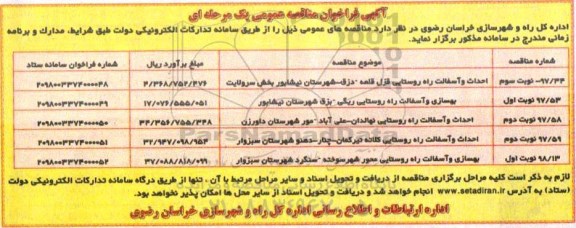 آگهی فراخوان مناقصه عمومی یک مرحله ای
اداره کل راه و شهرسازی خراسان رضوی در نظر دارد مناقصه های عمومی ذیل را از طریق سامانه تدارکات الکترونیکی دولت طبق شرایط، مدارک و برنامه
زمانی مندرج در سامانه مذکور برگزار نماید.
شماره مناقصه موضوع مناقصه مبلغ برآورد ریال شماره فراخوان سامانه ستاد
۹۷/۳۴- نوبت سوم احداث وآسفالت راه روستایی قزل قلعه -بزق-شهرستان نیشابور بخش سرولایت ۴/۳۶۸/۷۵۲/۴۷۶ ۲۰۹۸۰۰۳۳۷۴۰۰۰۰۴۸
۹۷/۵۳ نوبت اول بهسازی وآسفالت راه روستایی ریگی -بزق شهرستان نیشابور ۱۷/۰۷۶/۵۵۵/۰۵۱ ۲۰۹۸۰۰۳۳۷۴۰۰۰۰۴۹
۹۷/۵۸ نوبت دوم احداث وآسفالت راه روستایی نهالدان-علی آباد -مور شهرستان داورزن ۳۴/۳۵۶/۷۵۵/۳۴۸ ۲۰۹۸۰۰۳۳۷۴۰۰۰۰۵۰
۹۷/۵۹ نوبت دوم احداث وآسفالت راه روستایی قلانه تیرکمان-چنار-دهنو شهرستان سبزوار ۳۲/۹۴۷/۰۹۸/۹۵۴ ۲۰۹۸۰۰۳۳۷۴۰۰۰۰۵۱
۹۸/۱۳ نوبت اول بهسازی وآسفالت راه روستایی محور شهرسوخته -سنگرد شهرستان سبزوار ۳۷/۰۸۸/۸۱۸/۰۹۹ ۲۰۹۸۰۰۳۳۷۴۰۰۰۰۵۲
لازم به ذکر است کلیه مراحل برگزاری مناقصه از دریافت و تحویل اسناد و سایر مراحل مرتبط با آن ، تنها از طریق درگاه سامانه تدارکات الکترونیکی دولت
(ستاد) به آدرس www.setadiran.ir انجام خواهد شد و دریافت و تحویل اسناد از سایر محل ها امکان پذیر نخواهد بود.
اداره ارتباطات و اطلاع رسانی اداره کل راه و شهرسازی خراسان رضوی